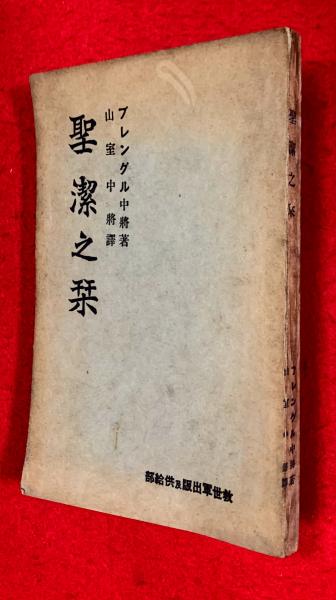 ブレングル中將著
山室中將譯
聖潔之栞
救世軍出版及供給部
聖潔之栞
ブレングル中將著